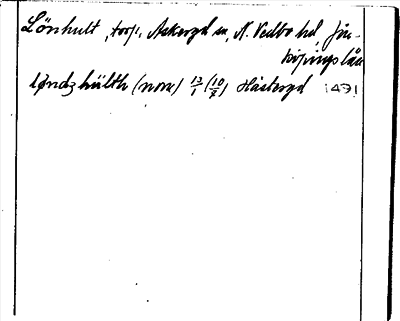 Lönhult, torp, Askeryd sn, N. Vedbo hd Jön-
köpings län
løndzhülth (nom) 13/1 (10/7) Hästeryd 1491